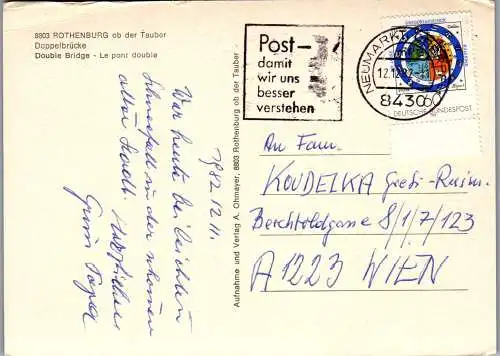 8803 ROTHENBURG ob der Tauber
Doppelbrücke
Double Bridge - Le pont double
Post-
damit
wir uns
besser
verstehen
NEUMARKT
12.12.82
8430
60
DEUTSCHE BUNDESPOST
1982 12 11.
War heute bei leichten
Schneefall in der schönen
alten Stadt. Herzlichen
Aufnahme und Verlag A. Ohmayer, 8803 Rothenburg ob der Tauber
An Fam.
KOUDELKA
Berchtoldgasse 8/1/7/123
A 1223 WIEN